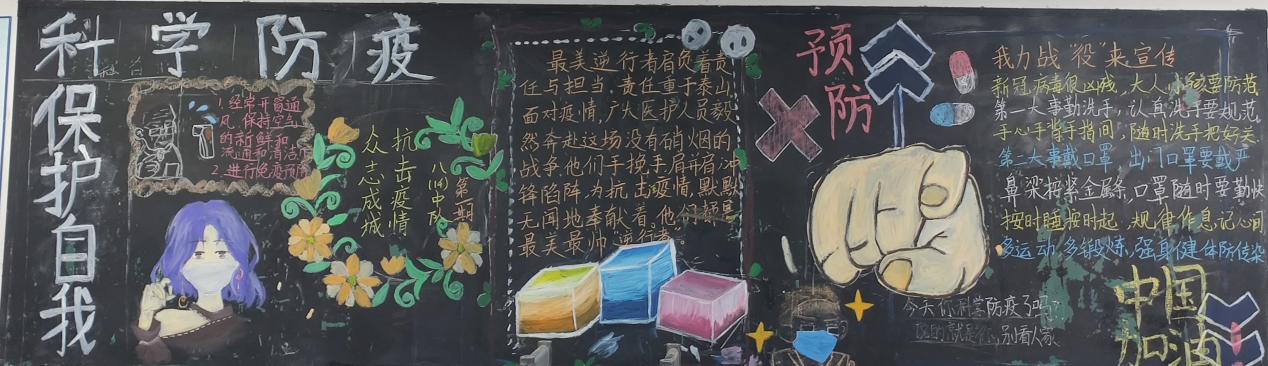 科学防疫
保护自我
1.经常开窗通
风,保持空气
的新鲜和
流通和清洁
2.进行免疫预
众志成城
抗击疫情
八(14)中队
第一期
最美逆行者肩负着责
任与担当,责任重于泰山,
面对疫情,广大医护人员毅
然奔赴这场没有硝烟的
战争,他们手挽手,肩并肩,冲
锋陷阵,为抗击疫情,默默
无闻地奉献着,他们都是
最美最帅"逆行者"。
预防
我力战"役"来宣传
新冠病毒很凶戒,大人小孩要防范
第一大事勤洗手,认真洗手要规范
手心手背手指间,随时洗手把好关
第二大事戴口罩,出门口罩要戴严
鼻梁按紧金属条,口罩随时要勤快
按时睡按时起,规律作息记心间
多运动多锻炼,强身健体防传染
今天你科学防疫了吗?
说的就是你,别看人家
中国
加油!